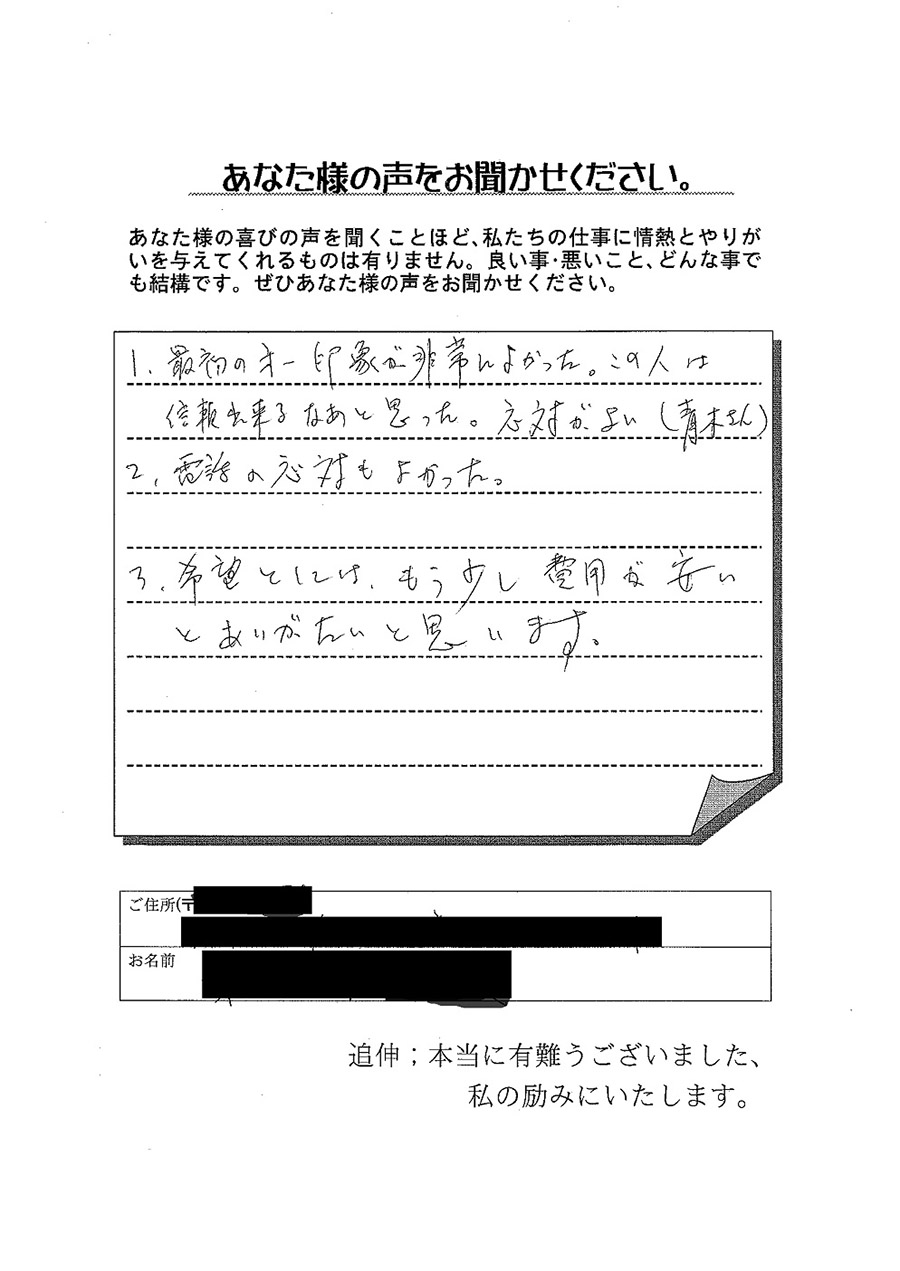 あなた様の声をお聞かせください。
あなた様の喜びの声を聞くことほど、私たちの仕事に情熱とやりが
いを与えてくれるものは有りません。良い事・悪いこと、どんな事で
も結構です。ぜひあなた様の声をお聞かせください。
1. 最初のオ一印象が非常によかった。この人は
信頼出来るなあと思った。応対がよい(青木さん)
2. 電話の応対もよかった。
3. 希望としては、もう少し費用が安い
とありがたいと思います。
ご住所(〒
お名前
追伸；本当に有難うございました、
私の励みにいたします。